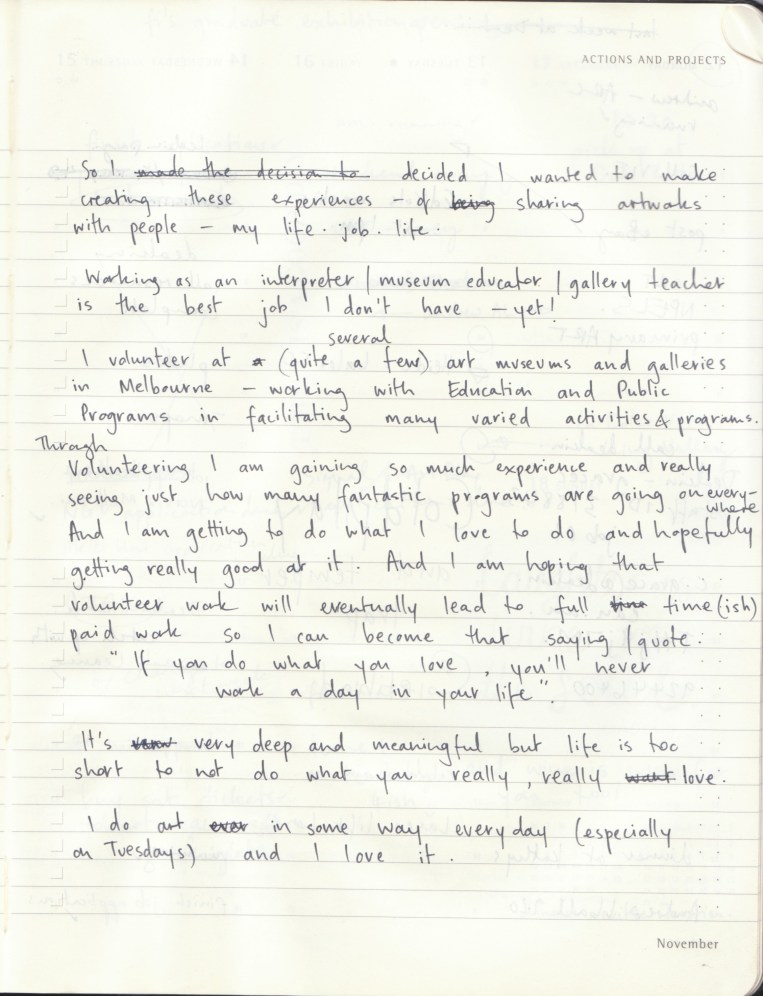 ACTIONS AND PROJECTS
So I made the decision to decided I wanted to make
creating these experiences – of being sharing artwoks
with people – my life. job. life.
Working as an interpreter / museum educator / gallery teacher
is the best job I don't have – yet!
several
I volunteer at a (quite a few) art museums and galleries
in Melbourne – working with Education and Public
Programs in facilitating many varied activities & programs.
Through
Volunteering I am gaining so much experience and really
seeing just how many fantastic programs are going on every-
where
And I am getting to do what I love to do and hopefully
getting really good at it. And I am hoping that
volunteer work will eventually lead to full time time (ish)
paid work so I can become that saying / quote:
"If you do what you love, you'll never
work a day in your life".
It's very deep and meaningful but life is too
short to not do what you really, really want love.
I do art ever in some way every day (especially
on Tuesdays) and I love it.
November